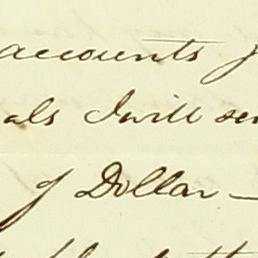 accounts
als I will sen
of Dollar —